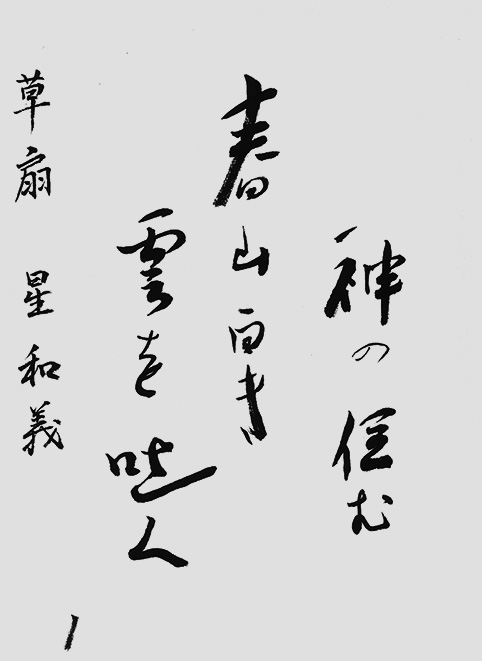 神の住む
春山白き
雲を吐く
草扇 星和義